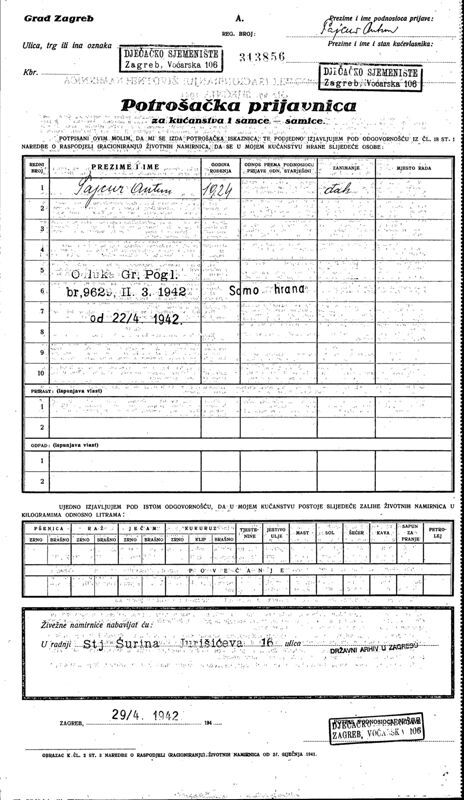 Grad Zagreb
A.
REG. BROJ:
313856
Prezime i ime podnosioca prijave:
Pajcur Antun
Ulica, trg ili ina oznaka
DJEČAČKO SJEMENIŠTE
Zagreb, Voćarska 106
Prezime i ime i stan kućevlasnika:
DJEČAČKO SJEMENIŠTE
Zagreb, Voćarska 106
Kbr.
Potrošačka prijavnica
za kućanstva i samce — samice.
POTPISANI OVIM MOLIM, DA MI SE IZDA POTROŠAČKA ISKAZNICA, TE POPJEDNO IZJAVLJUJEM POD ODGOVORNOŠĆU IZ ČL. 18 ST. 1
NAREDBE O RASPODJELI (RACIONIRANJU) ŽIVOTNIH NAMIRNICA, DA SE U MOJEM KUĆANSTVU HRANE SLIJEDEĆE OSOBE:
REDNI BROJ
PREZIME I IME
GODINA ROĐENJA
ODNOS PREMA PODNOSIOCU PRIJAVE ODN. STARJEŠINI
ZANIMANJE
MJESTO RADA
1 Pajcur Antun 1924 đak
2
3
4
5 Odluka Gr. Pogl.
6 br,962, II. 3. 1942 Samo hrana
7 od 22/4 1942.
8
9
10
PRIRAST: (ispunjava vlast)
1
2
OTPAD: (ispunjava vlast)
1
2
UJEDNO IZJAVLJUJEM POD ISTOM ODGOVORNOŠĆU, DA U MOJEM KUĆANSTVU POSTOJE SLIJEDEĆE ZALIHE ŽIVOTNIH NAMIRNICA U
KILOGRAMIMA ODNOSNO LITRAMA:
PŠENICA RAŽ JEČAM KUKURUZ TJESTENINE JESTIVO ULJE MAST SOL ŠEĆER KAVA SAPUN ZA PRANJE PETROLEJ
ZRNO BRAŠNO ZRNO BRAŠNO ZRNO BRAŠNO ZRNO KLIP BRAŠNO
POVEĆANJE
Živežne namirnice nabavljat ću:
U radnji Stj Šurina Jurišićeva 16 ulica
DRŽAVNI ARHIV U ZAGREBU
ZAGREB, 29/4. 1942 194
DJEČAČKO SJEMENIŠTE
ZAGREB, VOĆARSKA 106
OBRAZAC K. ČL. 2 ST. 2 NAREDBE O RASPODJELI (RACIONIRANJU) ŽIVOTNIH NAMIRNICA OD 27. SIJEČNJA 1941.